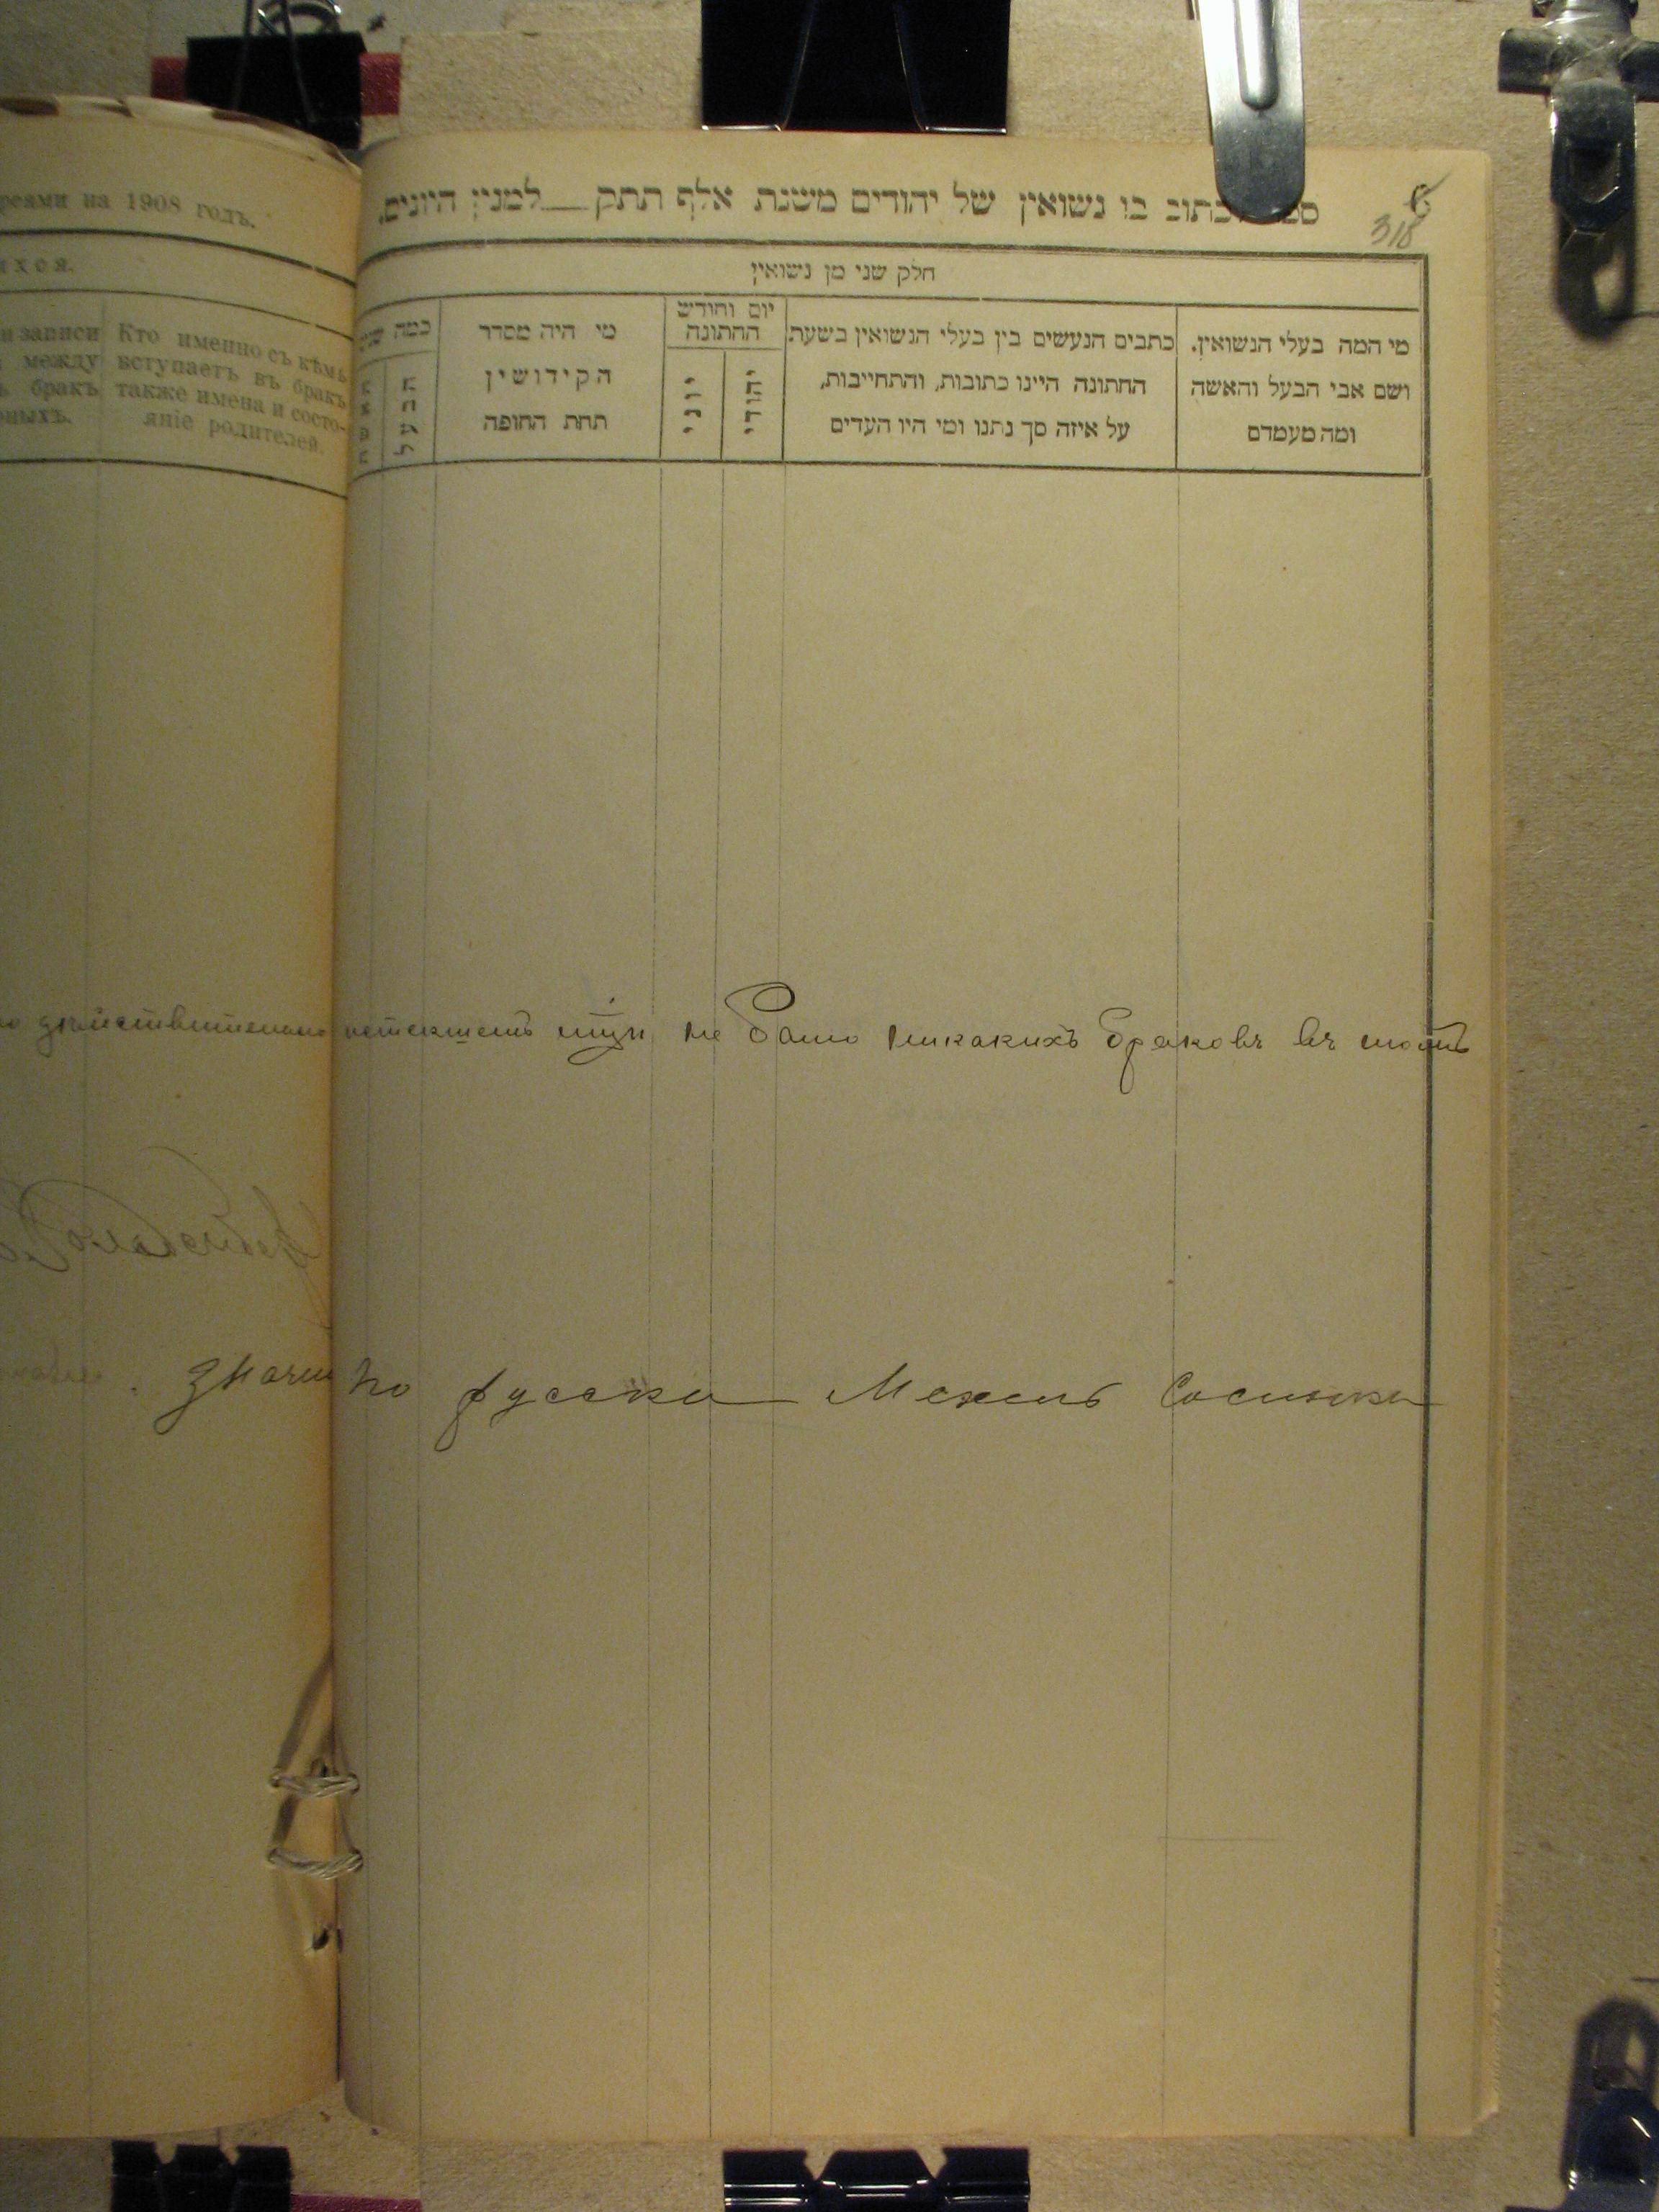 реями на 1908 годъ.
ихся.
и записи
между
ъ бракъ
Кто именно съ кѣмъ
вступаетъ въ бракъ
также имена и состо-
яніе родителей.
318
כתוב בו נשואין של יהודים משנת אלף תתק___למנין היונים.
חלק שני מן נשואין
מי המה בעלי הנשואין,
ושם אבי הבעל והאשה
ומה מעמדם
כתבים הנעשים בין בעלי הנשואין בשעת
החתונה היינו כתובות, והתחייבות,
על איזה סך נתנו ומי היו העדים
יום וחודש
החתונה
יהודי
יוני
מי היה מסדר
הקידושין
תחת החופה
כמה
הבעל
האשה
действительно не было никакихъ браковъ въ томъ
по русски